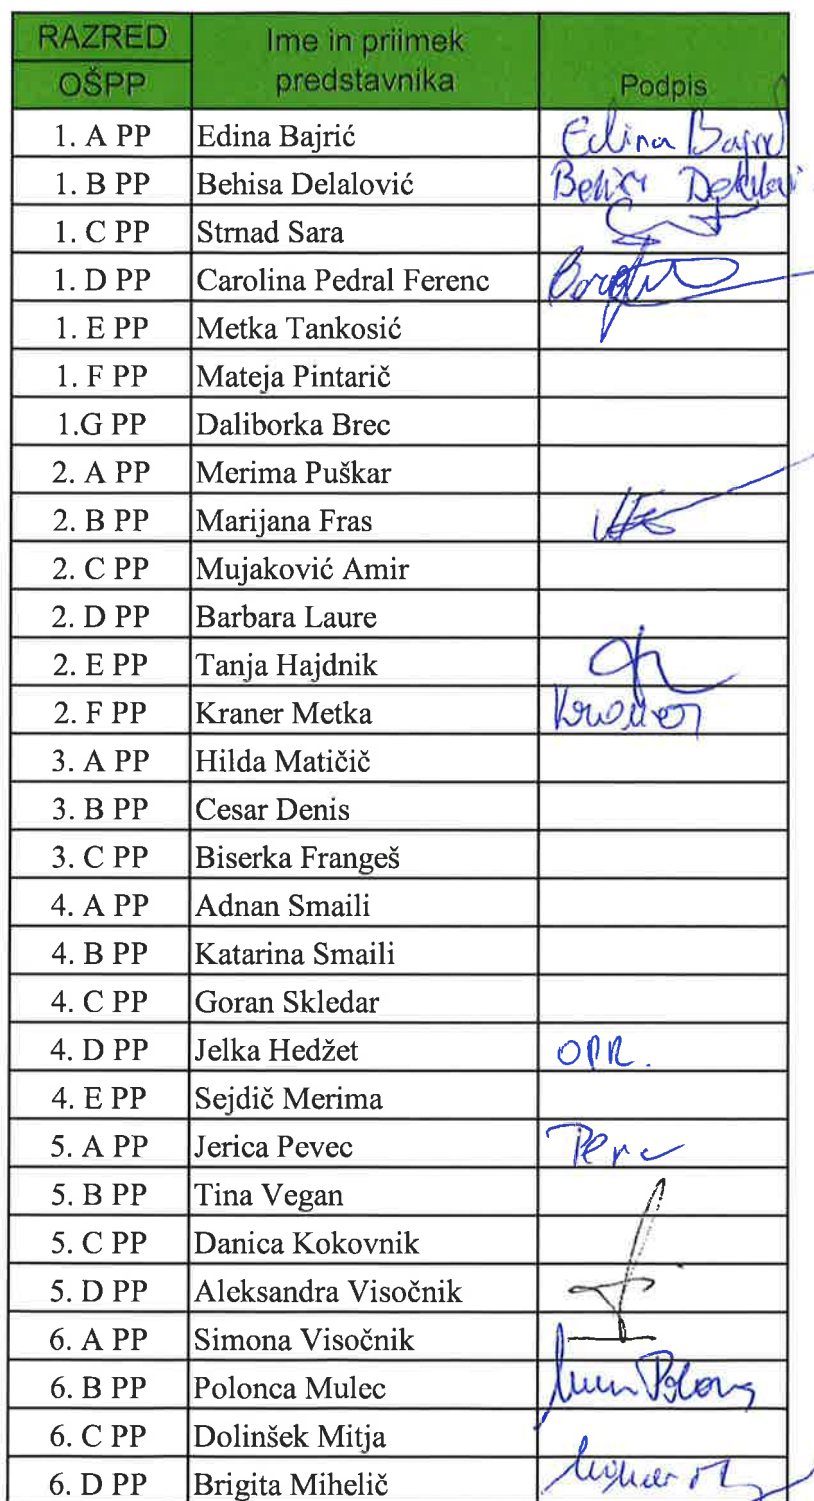 RAZRED OŠPP Ime in priimek predstavnika Podpis
1. A PP Edina Bajrić Edina Bajrić
1. B PP Behisa Delalović
1. C PP Strnad Sara
1. D PP Carolina Pedral Ferenc
1. E PP Metka Tankosić
1. F PP Mateja Pintarič
1.G PP Daliborka Brec
2. A PP Merima Puškar
2. B PP Marijana Fras
2. C PP Mujaković Amir
2. D PP Barbara Laure
2. E PP Tanja Hajdnik
2. F PP Kraner Metka
3. A PP Hilda Matičič
3. B PP Cesar Denis
3. C PP Biserka Frangeš
4. A PP Adnan Smaili
4. B PP Katarina Smaili
4. C PP Goran Skledar
4. D PP Jelka Hedžet OPR.
4. E PP Sejdič Merima
5. A PP Jerica Pevec
5. B PP Tina Vegan
5. C PP Danica Kokovnik
5. D PP Aleksandra Visočnik
6. A PP Simona Visočnik
6. B PP Polonca Mulec
6. C PP Dolinšek Mitja
6. D PP Brigita Mihelič